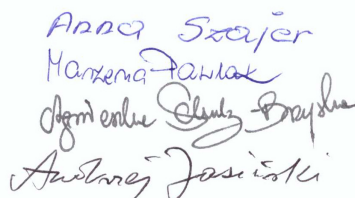 Anna Szajer
Marzena Pawlak
Agnieszka Schulz-Brzyska
Andrzej Jasiński